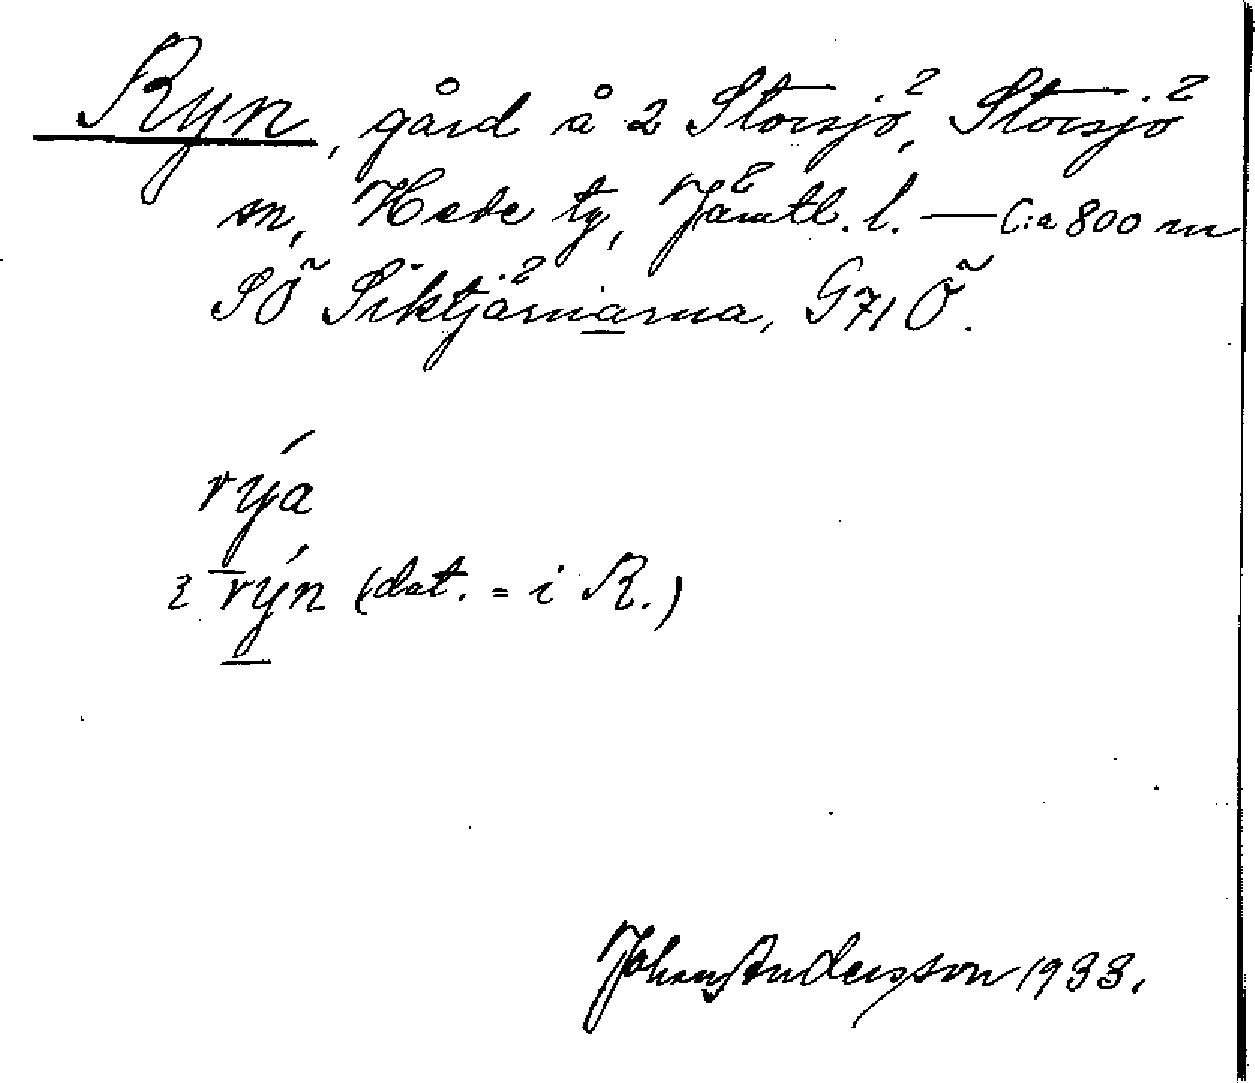 Ryn, gård å 2 Storsjö, Storsjö
sn, Hede tg, Jämtl. l. — C:a 800 m
SÖ Siktjärnarna, G71 Ö.
rýa
rýn (dat. = i R.)
Johan Andersson 1933.